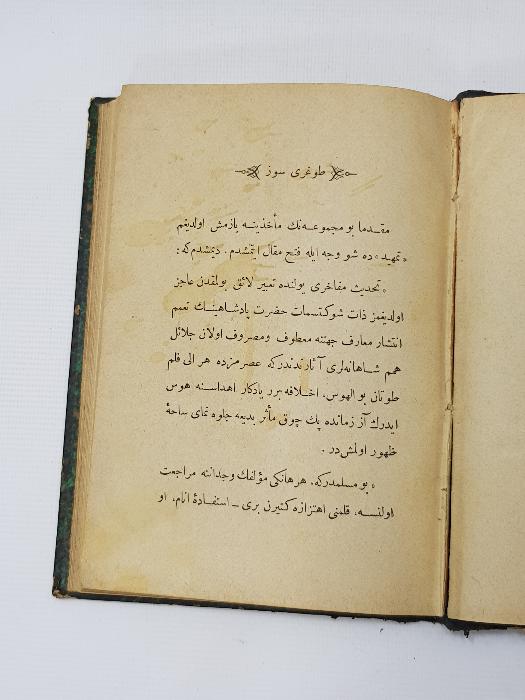 طوغری سوز
مقدما بو مجموعه‌نك مأخذینه یازمش اولدیغم
«تمهید» ده شو وجه ایله فتح مقال ایتمشدم. دیمشدم‌كه:
« تحدیث مفاخری یولنده تعبیر لائق بولمقدن عاجز
اولدیغمز ذات شوكتسمات حضرت پادشاهینك تعمم
انتشار معارف جهتنه معطوف ومصروف اولان جلائل
همم شاهانه‌لری آثارندندركه عصرمزده هر الی قلم
طوتان بوالهوس، اخلافه برر یادكار اهداسنه هوس
ایدرك آز زمانده پك چوق مأثر بدیعه جلوه نمای ساحهٔ
ظهور اولمش‌در.
« بو مسلمدركه، هرهانكی مؤلفك وجداننه مراجعت
اولنسه، قلمنی اهتزازه كتیرن بری ــ استفادهٔ انام، او